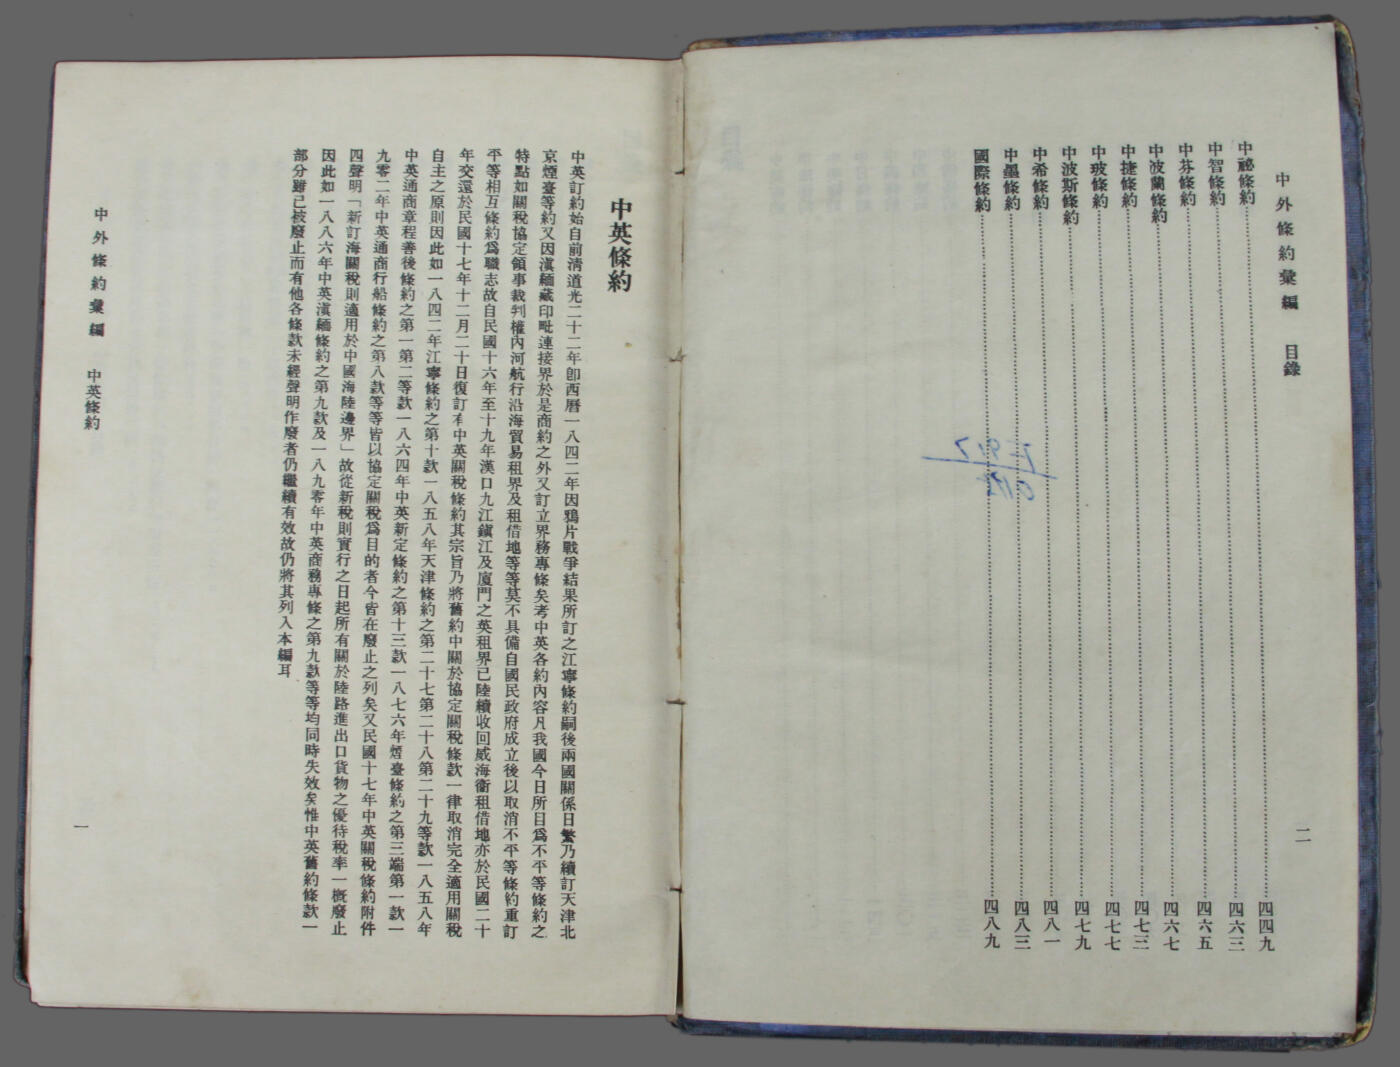 中外條約彙編　目錄
二
中祕條約……四四九
中智條約……四六三
中芬條約……四六五
中波蘭條約……四六七
中捷條約……四七三
中玻條約……四七七
中波斯條約……四七九
中希條約……四八一
中墨條約……四八三
國際條約……四八九
中英條約
中英訂約始自前淸道光二十二年卽西曆一八四二年因鴉片戰爭結果所訂之江寧條約嗣後兩國關係日繁乃續訂天津北
京煙臺等約又因滇緬藏印毗連接界於是商約之外又訂立界務專條矣考中英各約內容凡我國今日所目爲不平等條約之
特點如關稅協定領事裁判權內河航行沿海貿易租界及租借地等等莫不具備自國民政府成立後以取消不平等條約重訂
平等相互條約爲職志故自民國十六年至十九年漢口九江鎭江及廈門之英租界已陸續收回威海衞租借地亦於民國二十
年交還於民國十七年十二月二十日復訂有中英關稅條約其宗旨乃將舊約中關於協定關稅條款一律取消完全適用關稅
自主之原則因此如一八四二年江寧條約之第十款一八五八年天津條約之第二十七第二十八第二十九等款一八五八年
中英通商章程善後條約之第一第二等款一八六四年中英新定條約之第十三款一八七六年煙臺條約之第三端第一款一
九零二年中英通商行船條約之第八款等等皆以協定關稅爲目的者今皆在廢止之列矣又民國十七年中英關稅條約附件
四聲明「新訂海關稅則適用於中國海陸邊界」故從新稅則實行之日起所有關於陸路進出口貨物之優待稅率一槪廢止
因此如一八八六年中英滇緬條約之第九款及一八九零年中英商務專條之第九款等等均同時失效矣惟中英舊約條款一
部分雖已被廢止而有他各條款未經聲明作廢者仍繼續有效故仍將其列入本編耳
中外條約彙編　中英條約
一